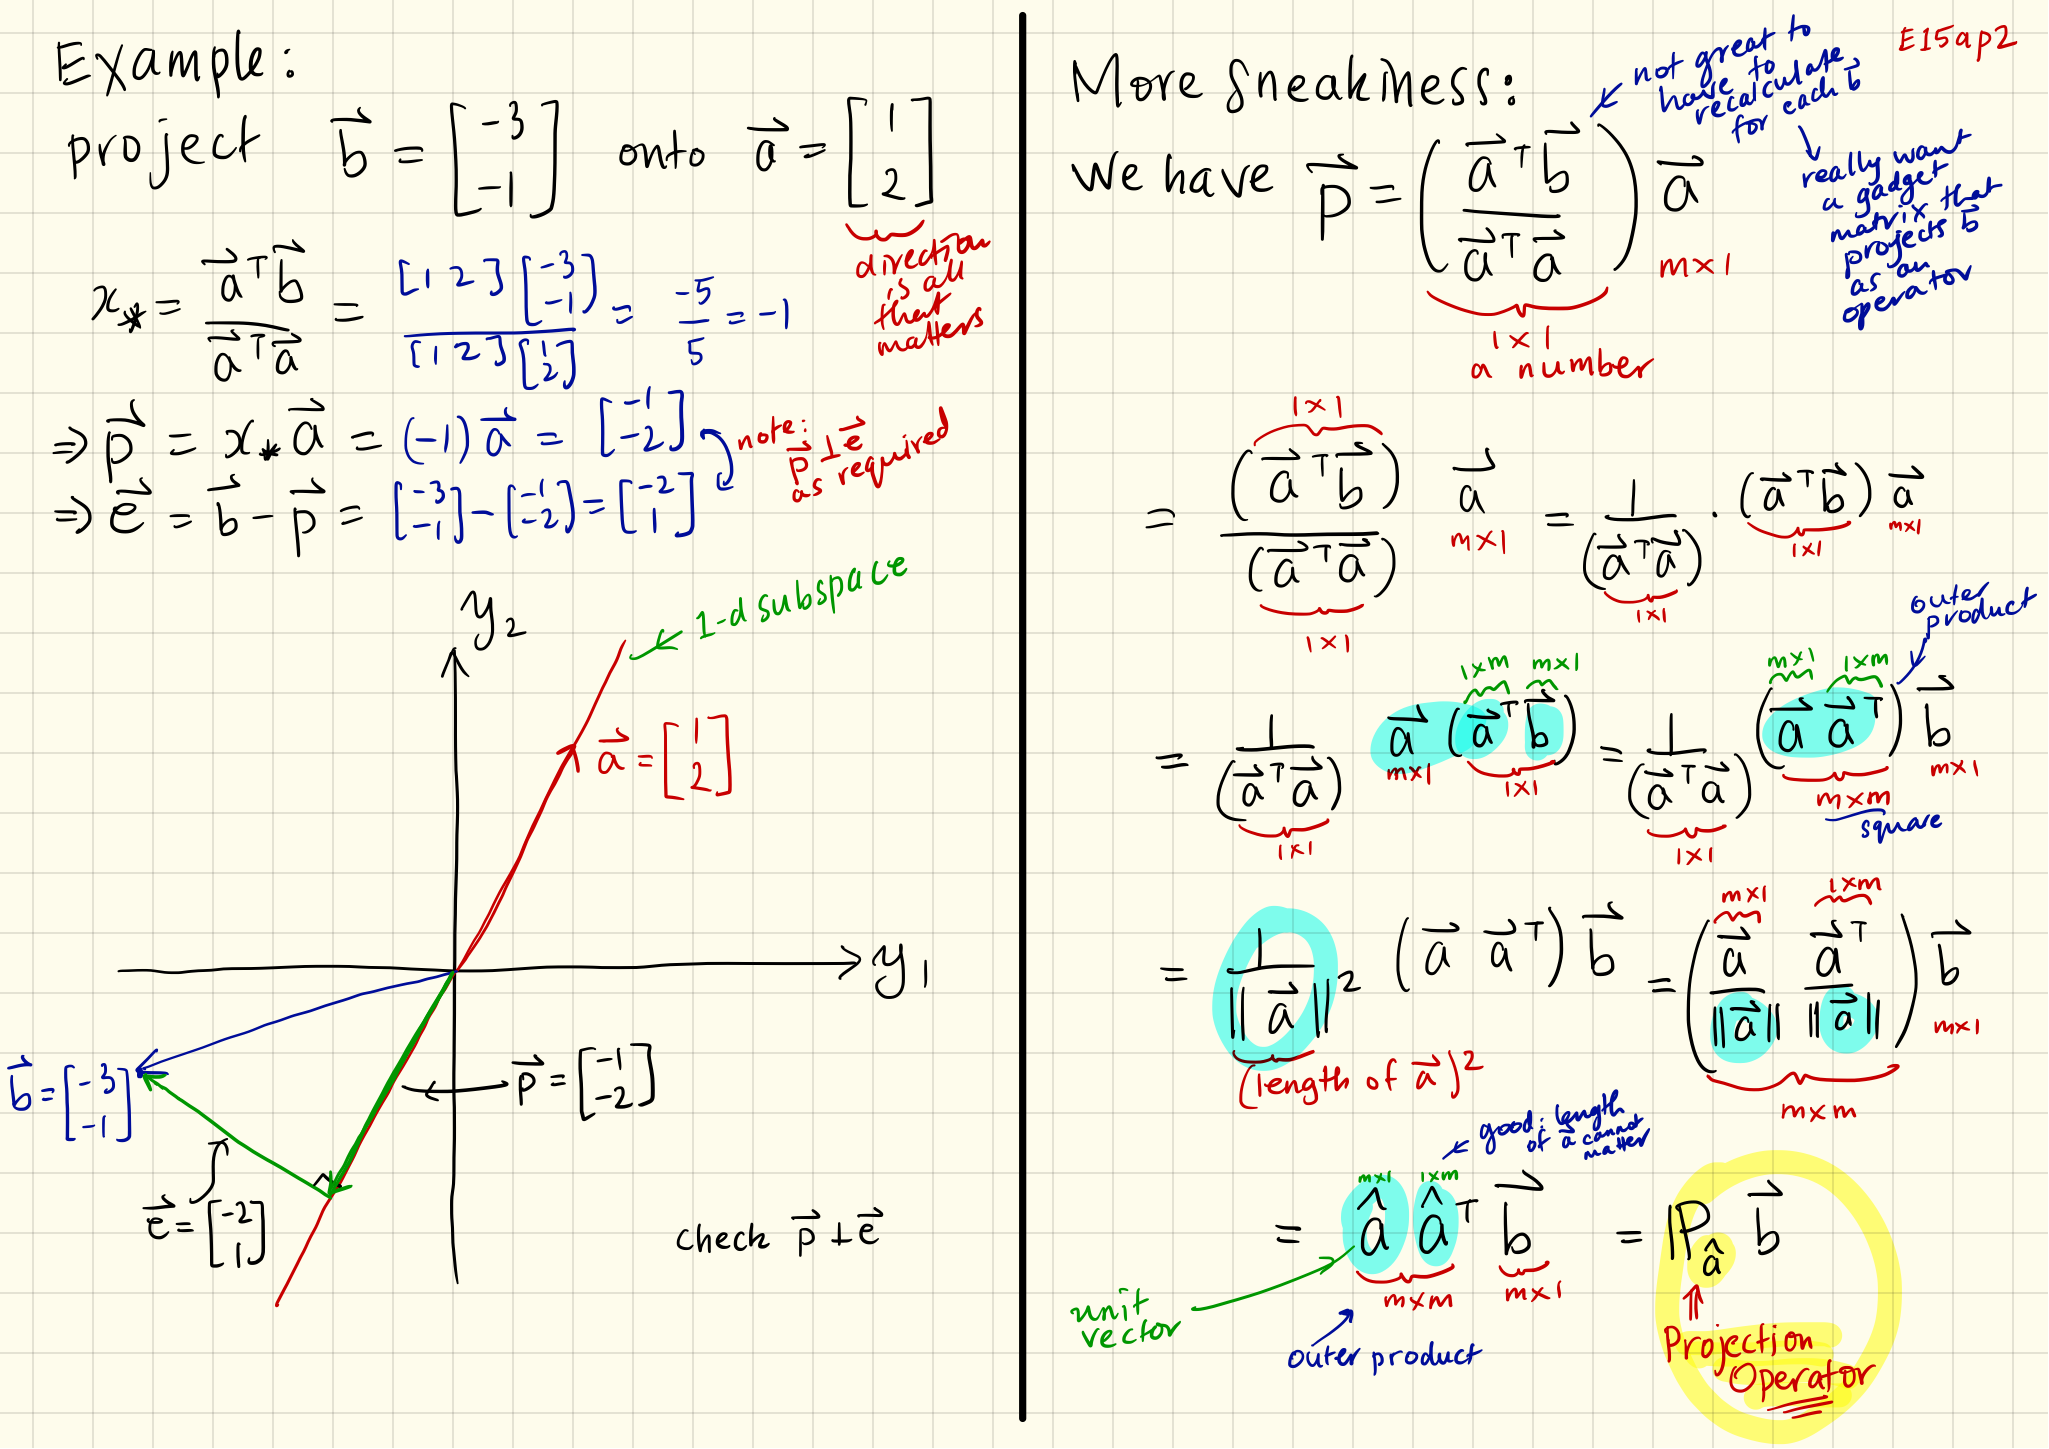 Example:
project b⃗ = [-3 -1] onto a⃗ = [1 2]
direction is all that matters
x* = a⃗ᵀb⃗ / a⃗ᵀa⃗ = [1 2][-3 -1] / [1 2][1 2] = -5/5 = -1
⇒ p⃗ = x* a⃗ = (-1) a⃗ = [-1 -2]
⇒ e⃗ = b⃗ - p⃗ = [-3 -1] - [-1 -2] = [-2 1]
note: p⃗ ⊥ e⃗
as required
y₂
1-d subspace
a⃗ = [1 2]
y₁
b⃗ = [-3 -1]
p⃗ = [-1 -2]
e⃗ = [-2 1]
check p⃗ ⊥ e⃗
E15ap2
More Sneakiness:
not great to
have to
recalculate
for each b⃗
really want
a gadget
matrix that
projects b⃗
as an
operator
We have p⃗ = (a⃗ᵀb⃗ / a⃗ᵀa⃗) a⃗
1×1
a number
m×1
1×1
= (a⃗ᵀb⃗) / (a⃗ᵀa⃗) a⃗ = 1/(a⃗ᵀa⃗) · (a⃗ᵀb⃗) a⃗
m×1 1×1 m×1
1×1 1×1
outer
product
1×m m×1 m×1 1×m
= 1/(a⃗ᵀa⃗) a⃗ (a⃗ᵀb⃗) = 1/(a⃗ᵀa⃗) (a⃗ a⃗ᵀ) b⃗
m×1 1×1 m×m m×1
square
1×1 1×1
m×1 1×m
= 1/||a⃗||² (a⃗ a⃗ᵀ) b⃗ = (a⃗/||a⃗|| a⃗ᵀ/||a⃗||) b⃗
m×1
(length of a⃗)²
m×m
good: length
of a⃗ cannot
matter
m×1 1×m
= â âᵀ b⃗ = ℙ_â b⃗
m×m m×1
unit
vector
outer product
Projection
Operator